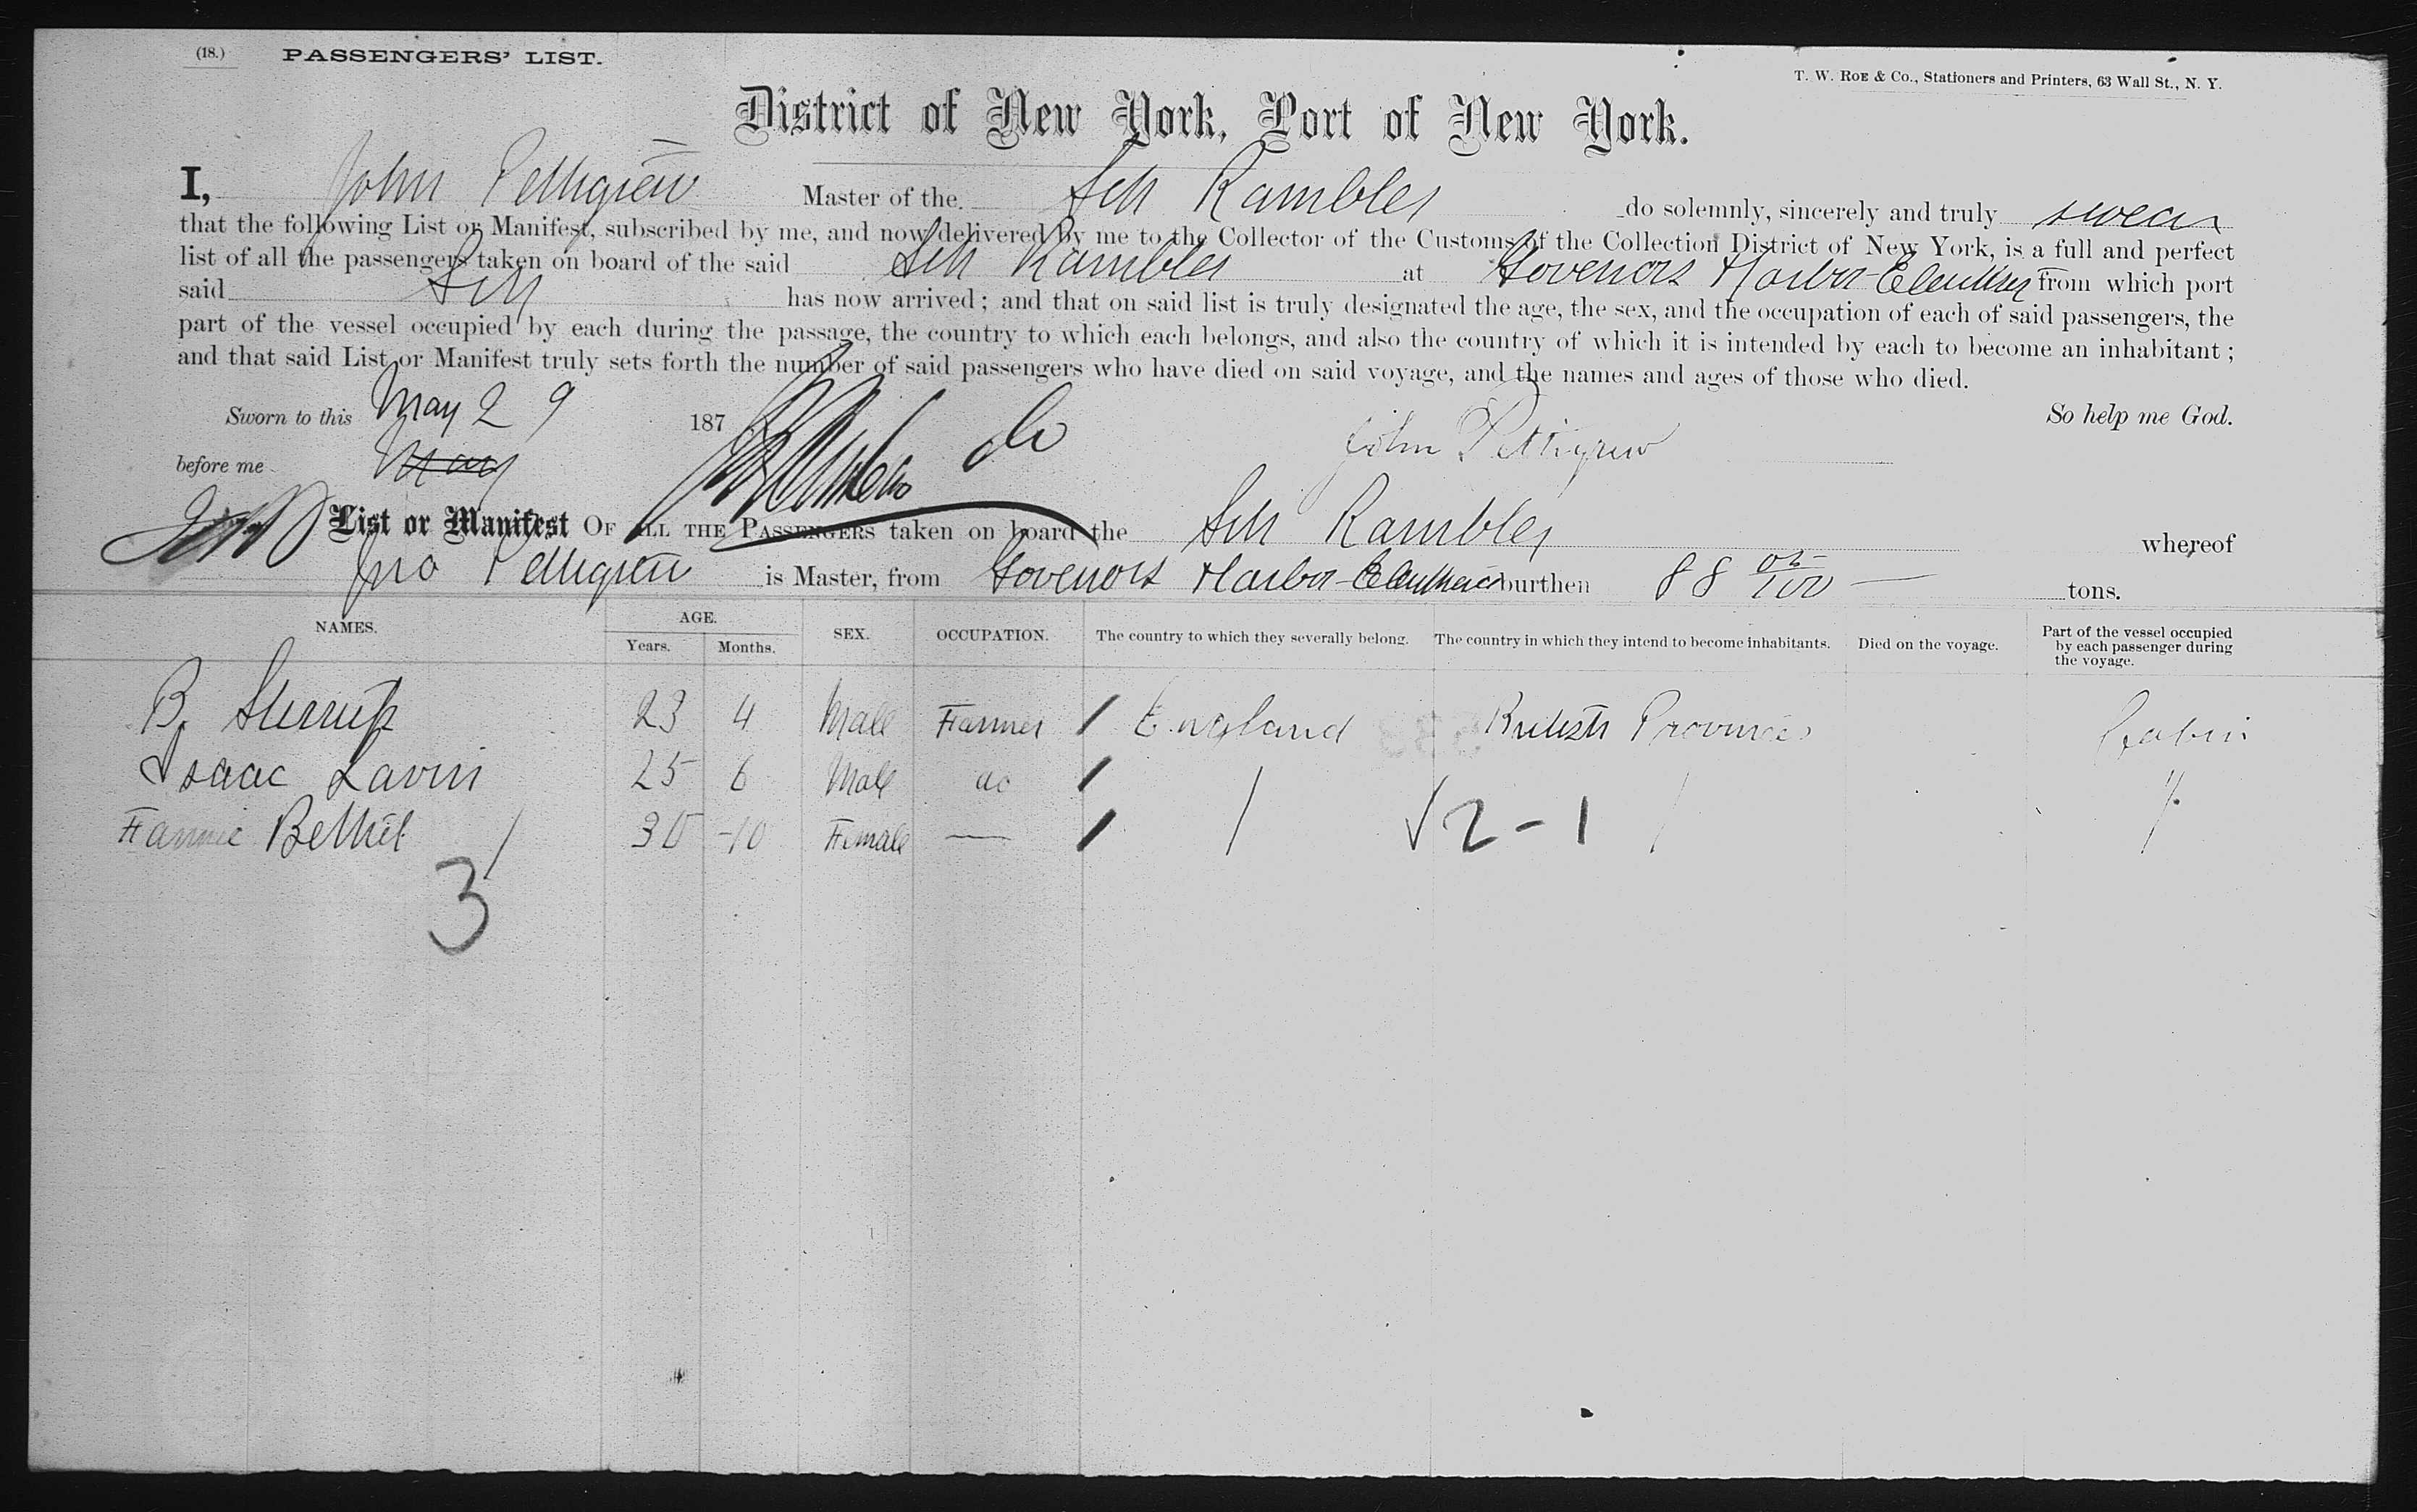 (18.) PASSENGERS' LIST.
T. W. ROE & Co., Stationers and Printers, 63 Wall St., N. Y.
District of New York, Port of New York.
I, John Pettigrew Master of the Sch Rambler do solemnly, sincerely and truly swear
that the following List or Manifest, subscribed by me, and now delivered by me to the Collector of the Customs of the Collection District of New York, is a full and perfect
list of all the passengers taken on board of the said Sch Rambler at Govenors Harbor Eleuthera from which port
said Sch has now arrived; and that on said list is truly designated the age, the sex, and the occupation of each of said passengers, the
part of the vessel occupied by each during the passage, the country to which each belongs, and also the country of which it is intended by each to become an inhabitant;
and that said List or Manifest truly sets forth the number of said passengers who have died on said voyage, and the names and ages of those who died.
Sworn to this May 29 187 So help me God.
John Pettigrew
before me May
List or Manifest OF ALL THE PASSENGERS taken on board the Sch Rambler whereof
Jno Pettigrew is Master, from Govenors Harbor Eleuthera burthen 88 02/100 tons.
NAMES. AGE. Years. Months. SEX. OCCUPATION. The country to which they severally belong. The country in which they intend to become inhabitants. Died on the voyage. Part of the vessel occupied by each passenger during the voyage.
B. Sturrup 23 4 Male Farmer / England British Provinces Cabin
Isaac Lavin 25 6 Male do / "
Fannie Bethel / 30 -10 Female — / / √ 2-1 /
3